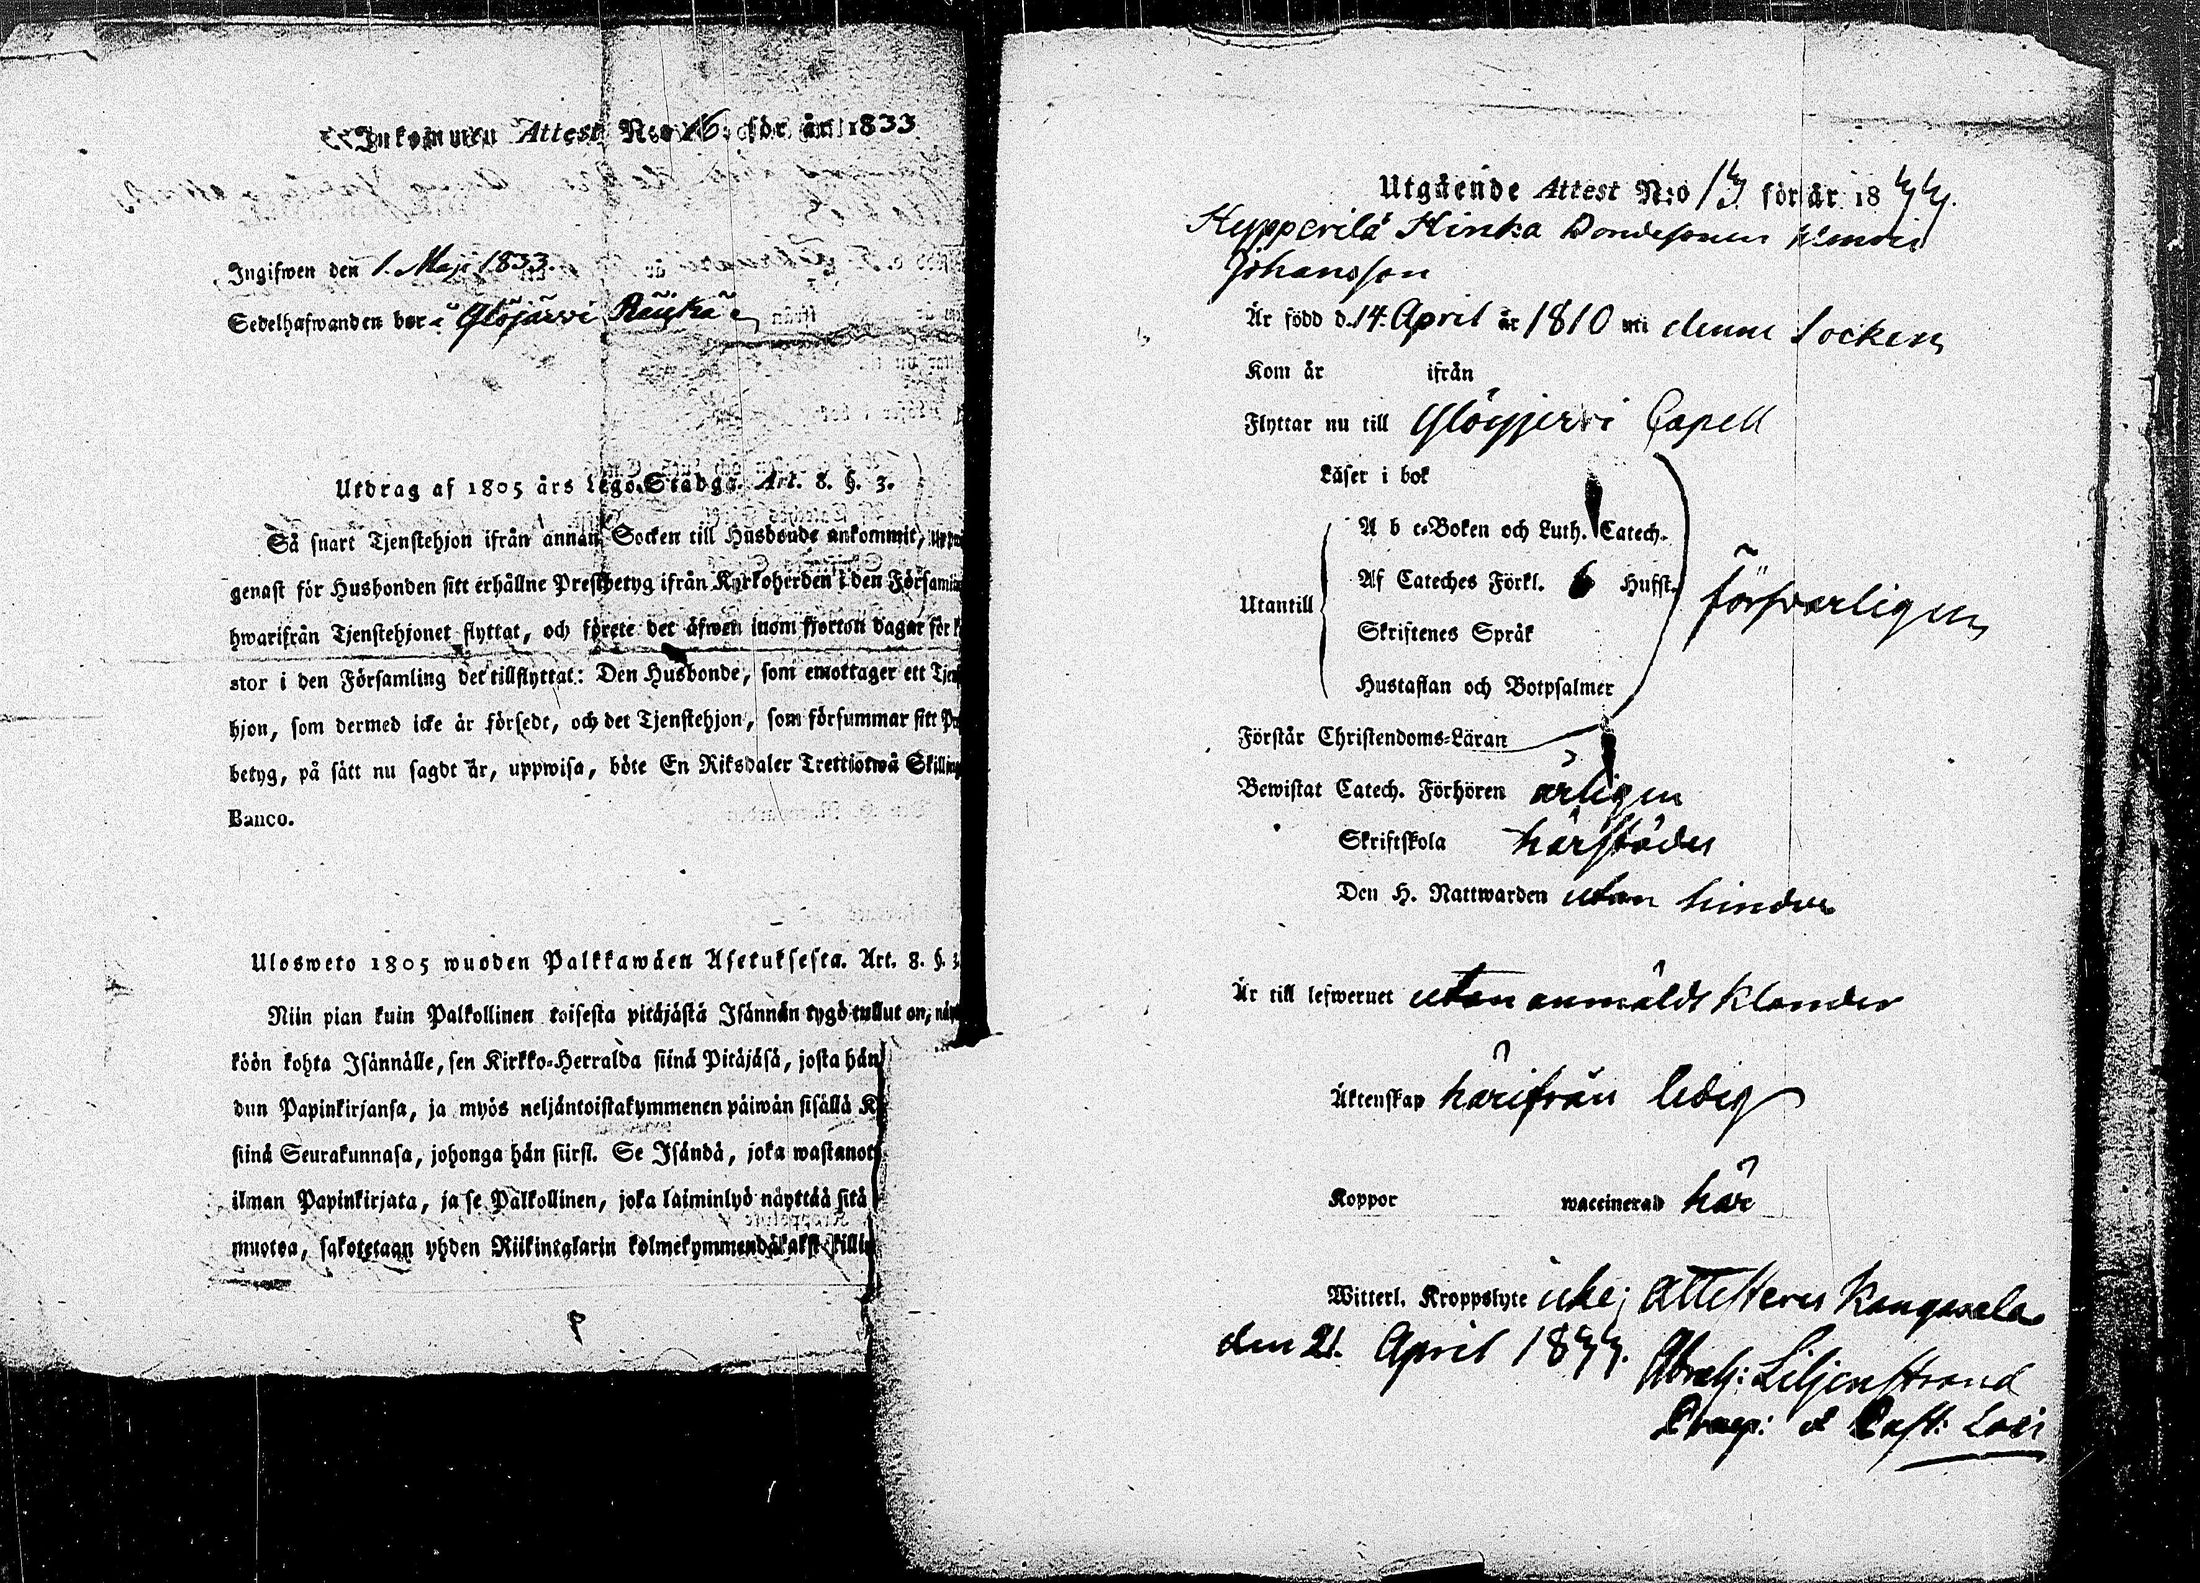 Inkommen Attest N:o 16. för år 1833
Ingifwen den 1. Maji 1833.
Sedelhafwanden bor i Ylöjärvi
Utdrag af 1805 års Lego-Stadga. Art. 8. §. 3.
Så snart Tjenstehjon ifrån annan Socken till Husbonde ankommit,
genast för Husbonden sitt erhållne Prestbetyg ifrån Kyrkoherden i den Församl
hwarifrån Tjenstehjonet flyttat, och förete det äfwen inom fjorton dagar för
stor i den Församling det tillflyttat: Den Husbonde, som emottager ett Tjen
hjon, som dermed icke är försedt, och det Tjenstehjon, som försummar sitt P
betyg, på sätt nu sagdt är, uppwisa, böte En Riksdaler Trettiotwå Skilling
Banco.
Ulosweto 1805 wuoden Palkkawäen Asetuksesta. Art. 8. §. 3.
Niin pian kuin Palkollinen toisesta pitäjästä Isännän tygö tullut on, näyt
köön kohta Isännälle, sen Kirkko-Herralda siinä Pitäjäsä, josta hän
dun Papinkirjansa, ja myös neljäntoistakymmenen päiwän sisällä K
siinä Seurakunnasa, johonga hän siirsi. Se Isändä, joka wastanot
ilman Papinkirjata, ja se Palkollinen, joka laiminlyö näyttää sitä
muotoa, sakotetaan yhden Riikintalarin kolmekymmendäkaksi killin
Utgående Attest N:o 13 för år 1844.
Hypperilä Hinka Bondesonen
Johansson
Är född d. 14. April år 1810 uti denne Socken
Kom år ifrån
Flyttar nu till Ylöjjerwi Capell
Läser i bok
A b c-Boken och Luth. Catech.
Af Cateches Förkl. 6 Hufst.
Utantill
försvarligen
Skriftenes Språk
Hustaflan och Botpsalmer
Förstår Christendoms-Läran
Bewistat Catech. Förhören årligen
Skriftskola härstädes
Den H. Nattwarden utan hinder
Är till lefwernet utan anmäldt klander
Äktenskap härifrån ledig
Koppor waccinerad här
Witterl. Kroppslyte icke; attesteres Kangasala
den 21. April 1844. Abrah: Liljenstrand
Praep: & Past: Loci